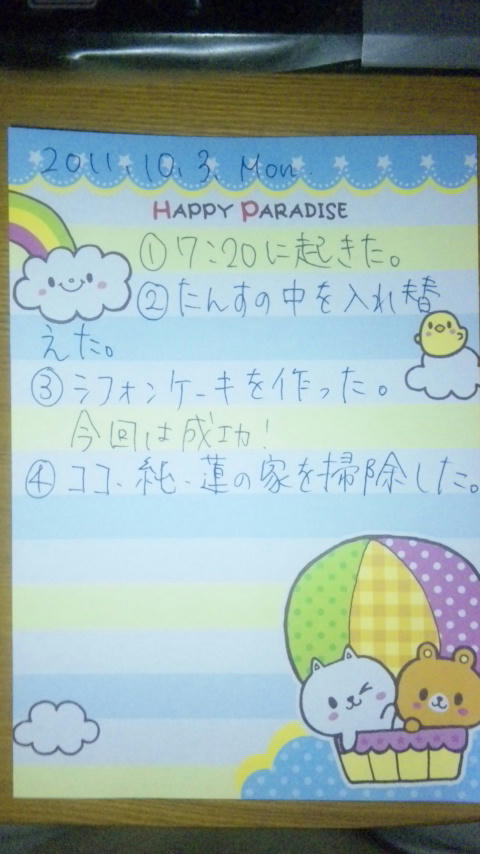 2011.10.3. Mon.
HAPPY PARADISE
①7:20に起きた。
②たんすの中を入れ替
えた。
③シフォンケーキを作った。
今回は成功!
④ココ、純、蓮の家を掃除した。